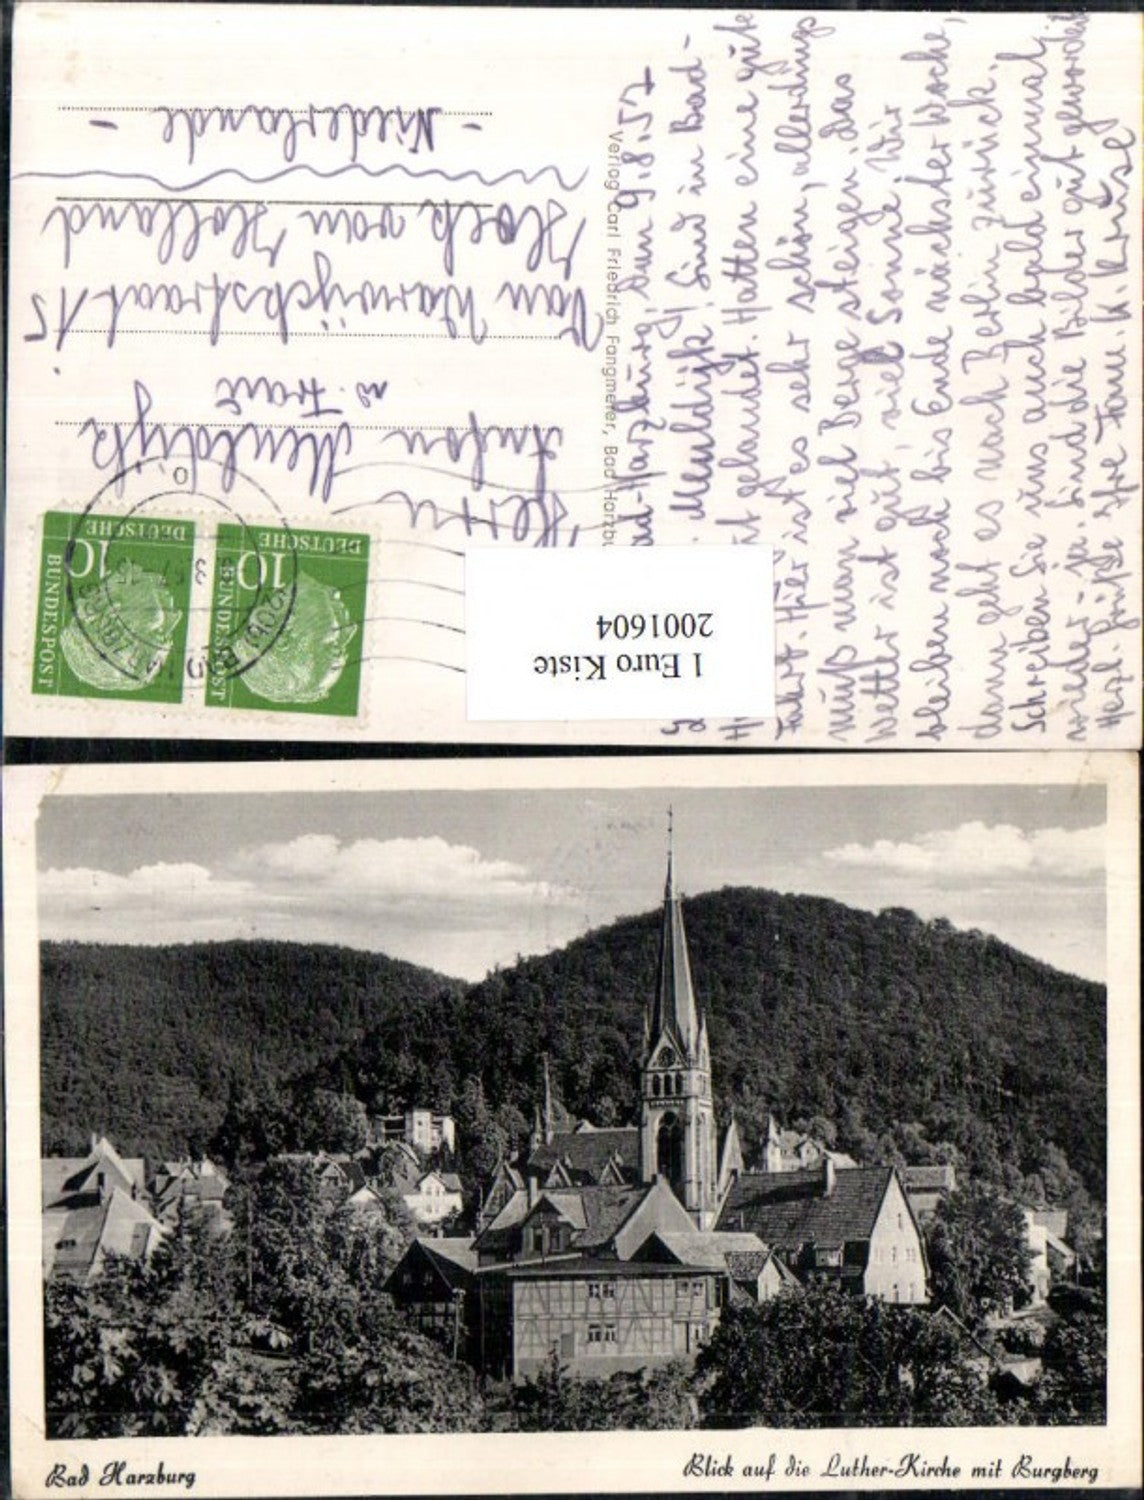 Bad-Harzburg, am 9.8.57
Meuldijk! Sind in Bad-
gelandet. Hatten eine gute
Fahrt. Hier ist es sehr schön, allerdings
muß man viel Berge steigen. Das
Wetter ist gut, viel Sonne. Wir
bleiben noch bis Ende nächster Woche,
dann geht es nach Berlin zurück.
Schreiben Sie uns auch bald einmal
wieder ja. Sind die Bilder gut geworden
Herzl. Grüße Ihre Fam. K. Kruse
Verlag Carl Friedrich Fangmeier, Bad Harzbu
DEUTSCHE
BUNDESPOST
10
DEUTSCHE
BUNDESPOST
10
BAD HARZBURG
Herrn
Anton Meuldijk
u. Frau
Van Warwijckstraat 15
Hoek van Holland
- Niederlande -
1 Euro Kiste
2001604
Bad Harzburg
Blick auf die Luther-Kirche mit Burgberg